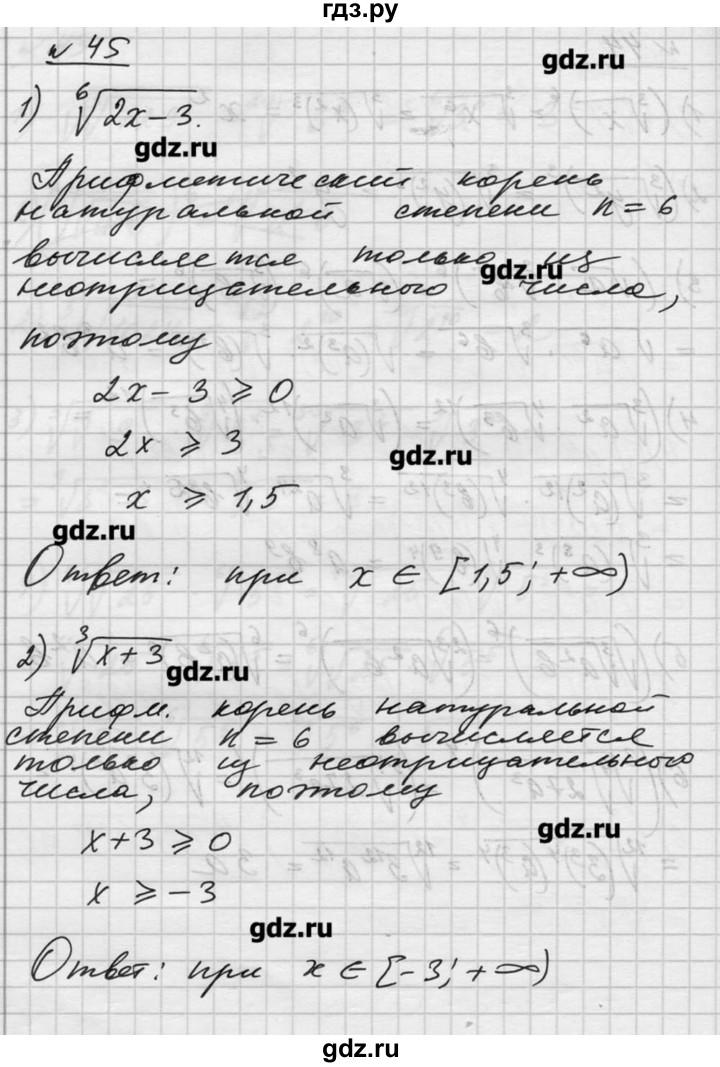 гдз.ру
№ 45
gdz.ru
1) ⁶√(2x-3).
gdz.ru
Арифметический корень
натуральной степени n = 6
вычисляется только из
gdz.ru
неотрицательного числа,
поэтому
2x - 3 ⩾ 0
2x ⩾ 3
gdz.ru
x ⩾ 1,5
gdz.ru
Ответ: при x ∈ [1,5; +∞)
2) ³√(x+3)
gdz.ru
Арифм. корень натуральной
степени n = 6 вычисляется
только из неотрицательного
числа, поэтому
gdz.ru
x+3 ⩾ 0
x ⩾ -3
gdz.ru
Ответ: при x ∈ [-3; +∞)
gdz.ru